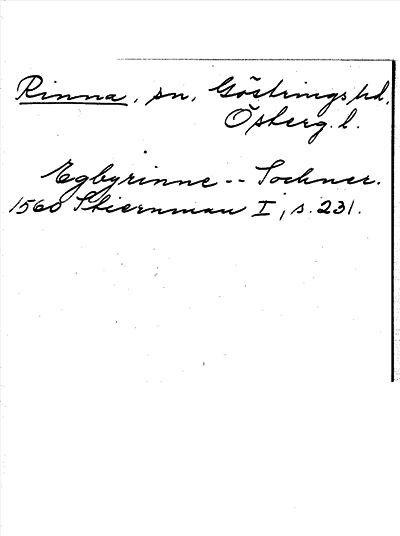 Rinna, sn, Göstrings hd,
Östergl.
Egbyrinne -- Sochner.
1560 Stiernman I, s. 231.